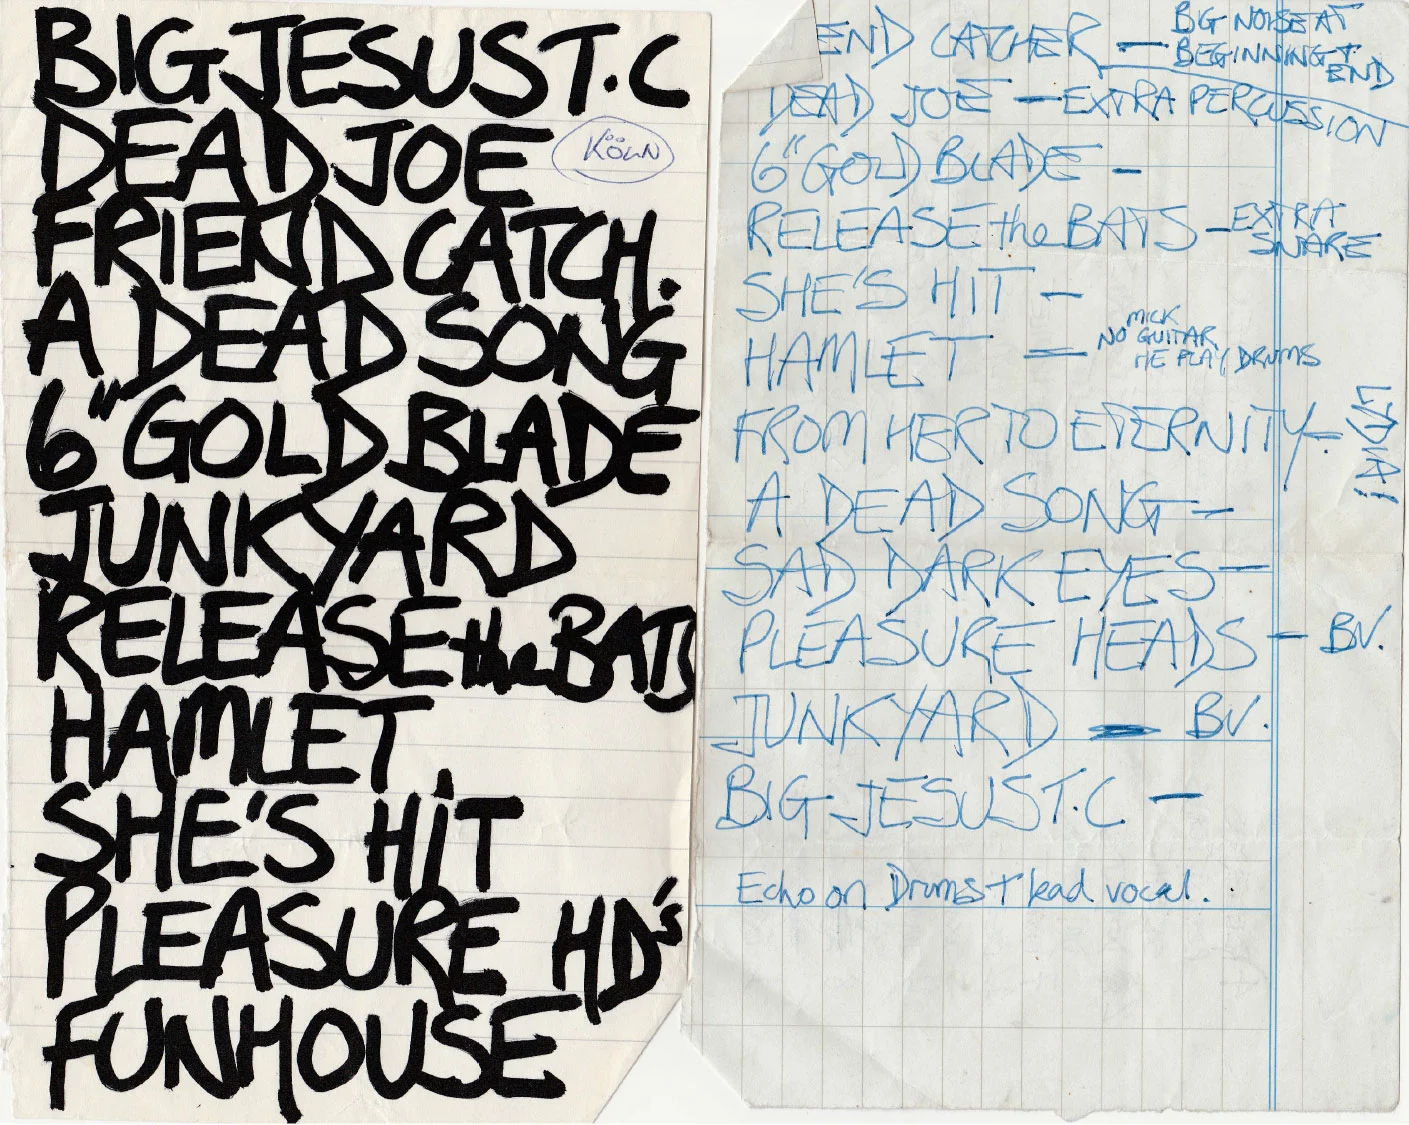 BIG JESUS T.C
DEAD JOE
KÖLN
FRIEND CATCH.
A DEAD SONG
6" GOLD BLADE
JUNKYARD
RELEASE the BATS
HAMLET
SHE'S HiT
PLEASURE HD's
FUNHOUSE
END CATCHER — BIG NOISE AT
BEGINNING +
END
DEAD JOE — EXTRA PERCUSSION
6" GOLD BLADE —
RELEASE the BATS — EXTRA
SNARE
SHE'S HIT —
HAMLET — NO MICK GUITAR
HE PLAY DRUMS
FROM HER TO ETERNITY — LYDIA!
A DEAD SONG —
SAD DARK EYES —
PLEASURE HEADS — BV.
JUNKYARD — BV.
BIG JESUS T.C —
Echo on Drums + lead vocal.